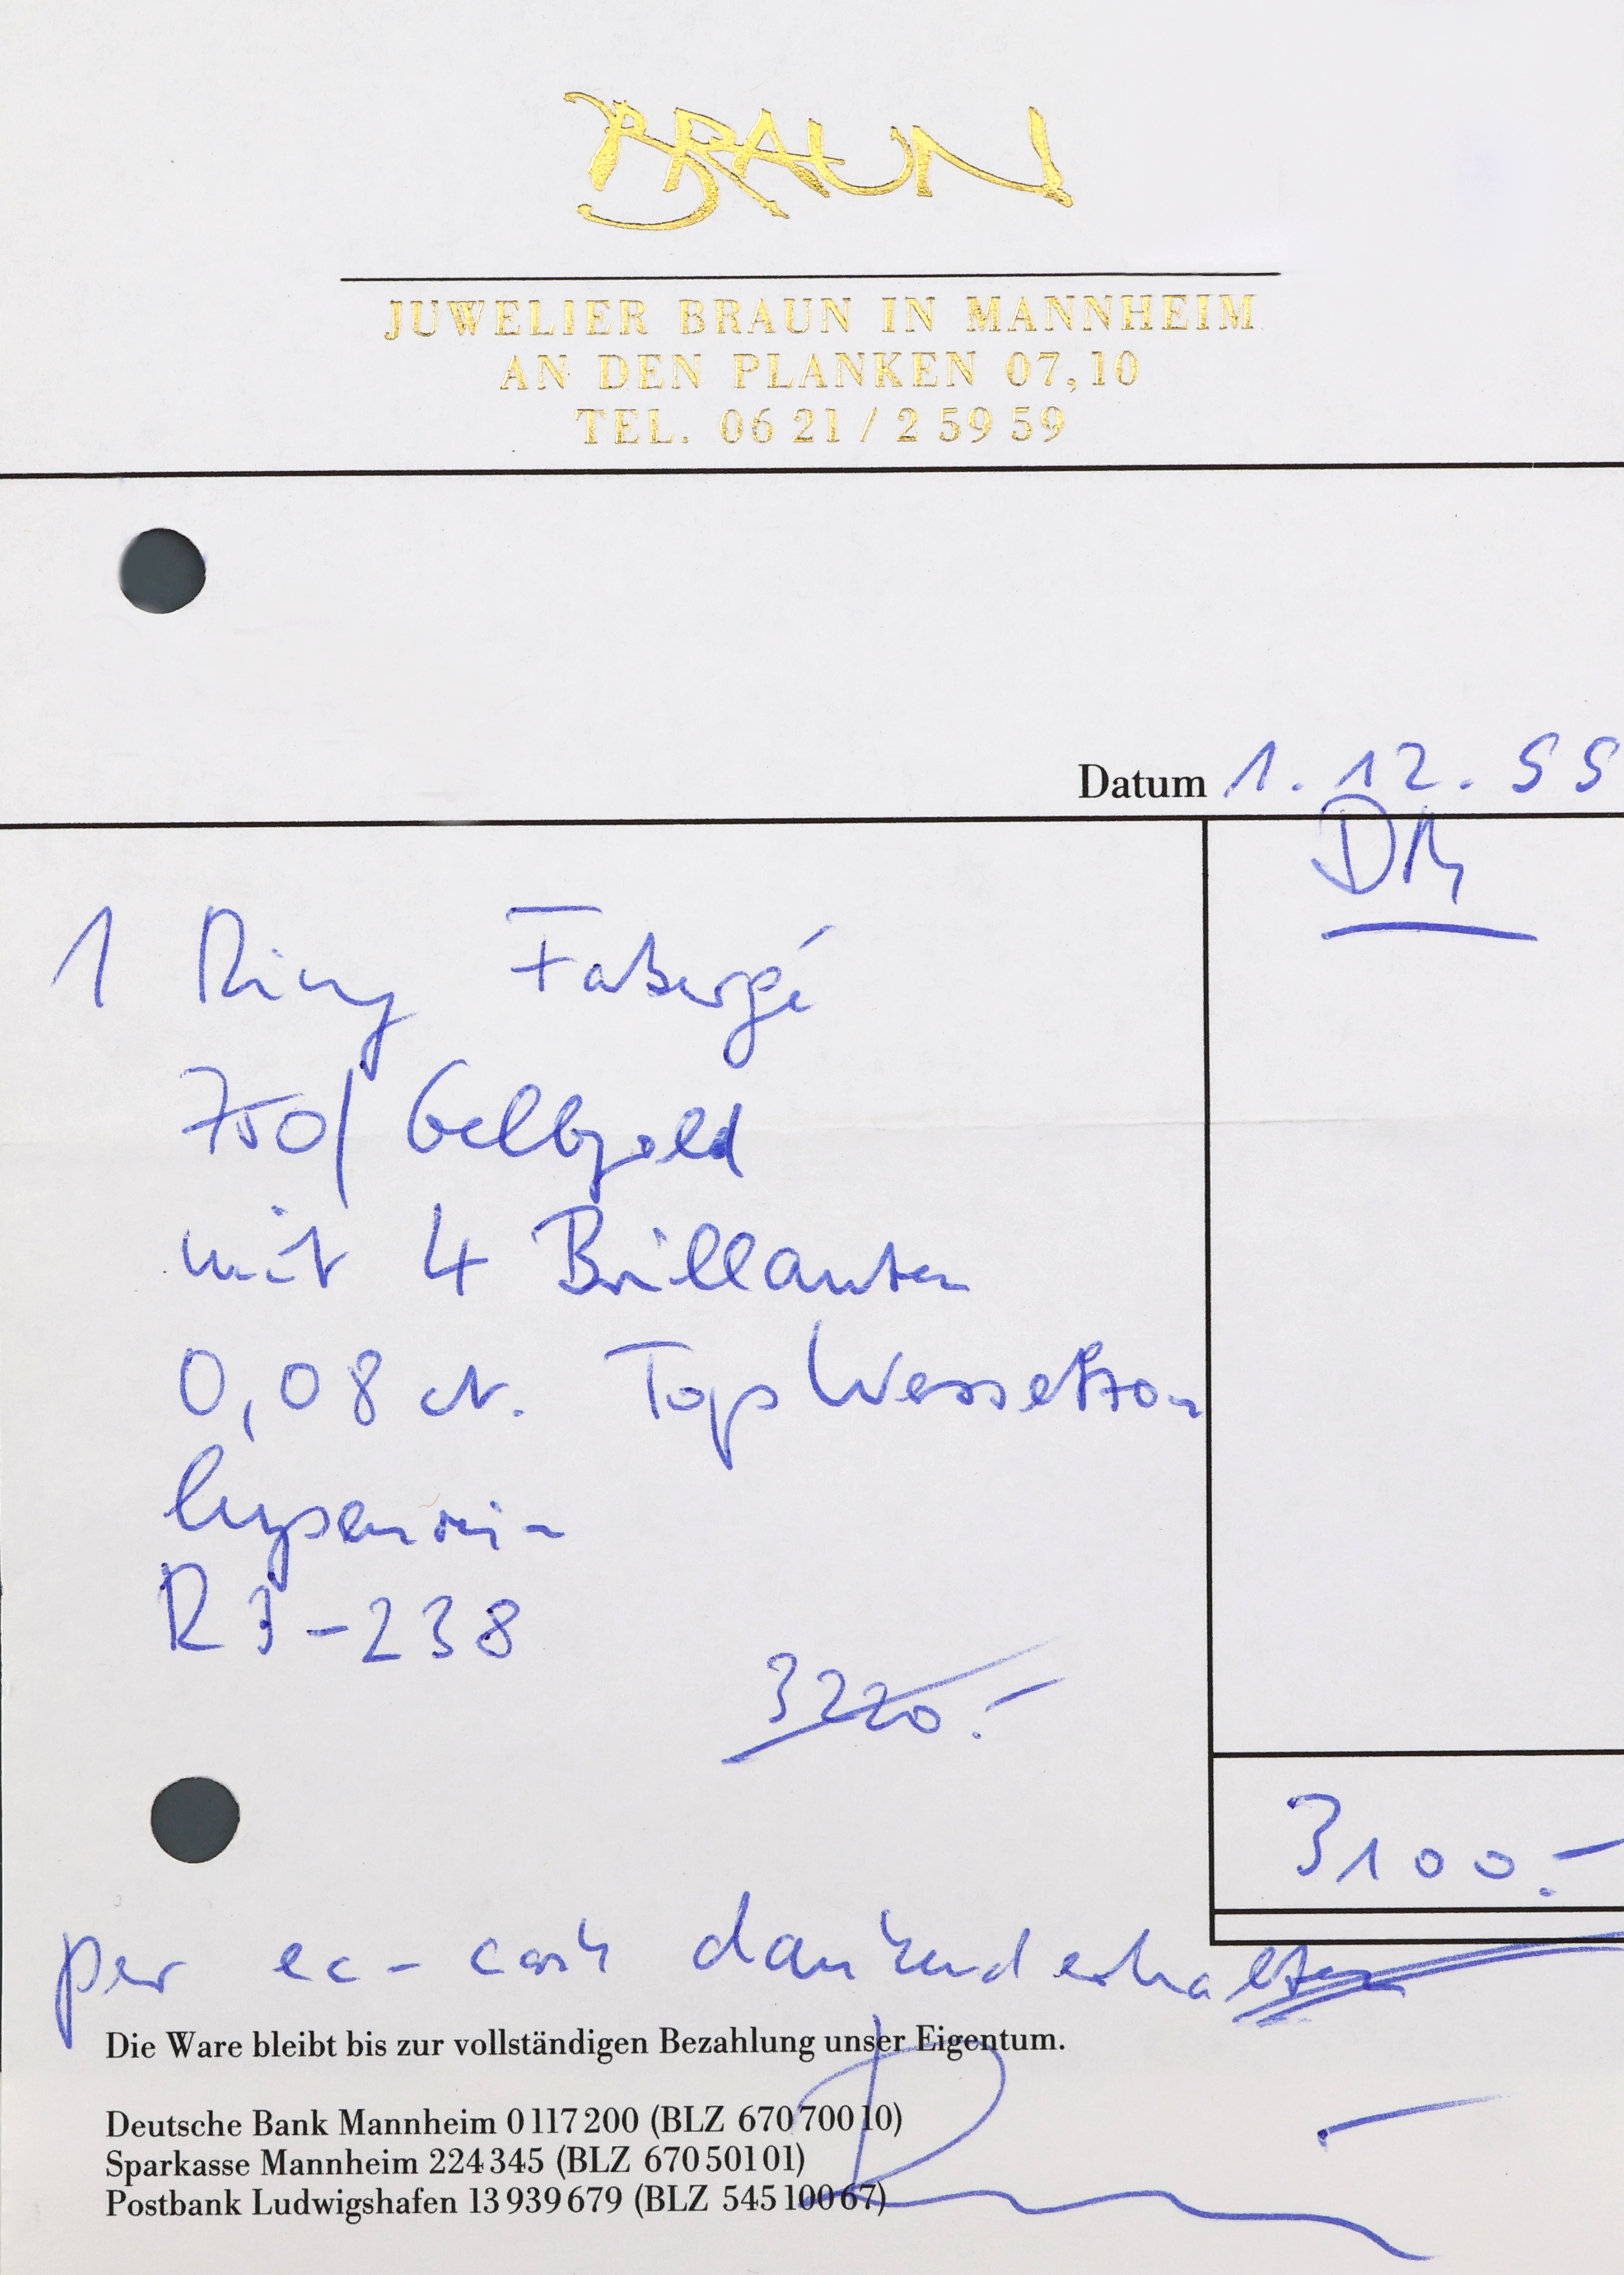 BRAUN
JUWELIER BRAUN IN MANNHEIM
AN DEN PLANKEN 07,10
TEL. 06 21 / 2 59 59
Datum 1. 12. 99
DM
1 Ring Fabergé
750/ Gelbgold
mit 4 Brillanten
0,08 ct. Top Wesselton
lupenrein
R3-238
3220.-
3100.-
per ec-cash dankend erhalten
Die Ware bleibt bis zur vollständigen Bezahlung unser Eigentum.
Deutsche Bank Mannheim 0 117 200 (BLZ 670 700 10)
Sparkasse Mannheim 224 345 (BLZ 670 501 01)
Postbank Ludwigshafen 13 939 679 (BLZ 545 100 67)